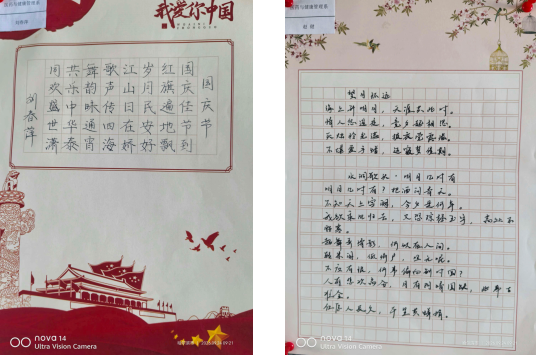 我爱你中国
国庆节
国庆佳节到
红旗遍地飘
岁月民安好
江山日在娇
歌声传四海
舞韵咏通宵
共乐中华泰
同欢盛世潇
刘春萍
nova 14
Ultra Vision Camera
望月怀远
海上升明月，天涯共此时。
情人怨遥夜，竟夕起相思。
灭烛怜光满，披衣觉露滋。
不堪盈手赠，还寝梦佳期。
水调歌头·明月几时有
明月几时有？把酒问青天。
不知天上宫阙，今夕是何年。
我欲乘风归去，又恐琼楼玉宇，高处不
胜寒。
起舞弄清影，何似在人间。
转朱阁，低绮户，照无眠。
不应有恨，何事长向别时圆？
人有悲欢离合，月有阴晴圆缺，此事古
难全。
但愿人长久，千里共婵娟。
nova 14
Ultra Vision Camera